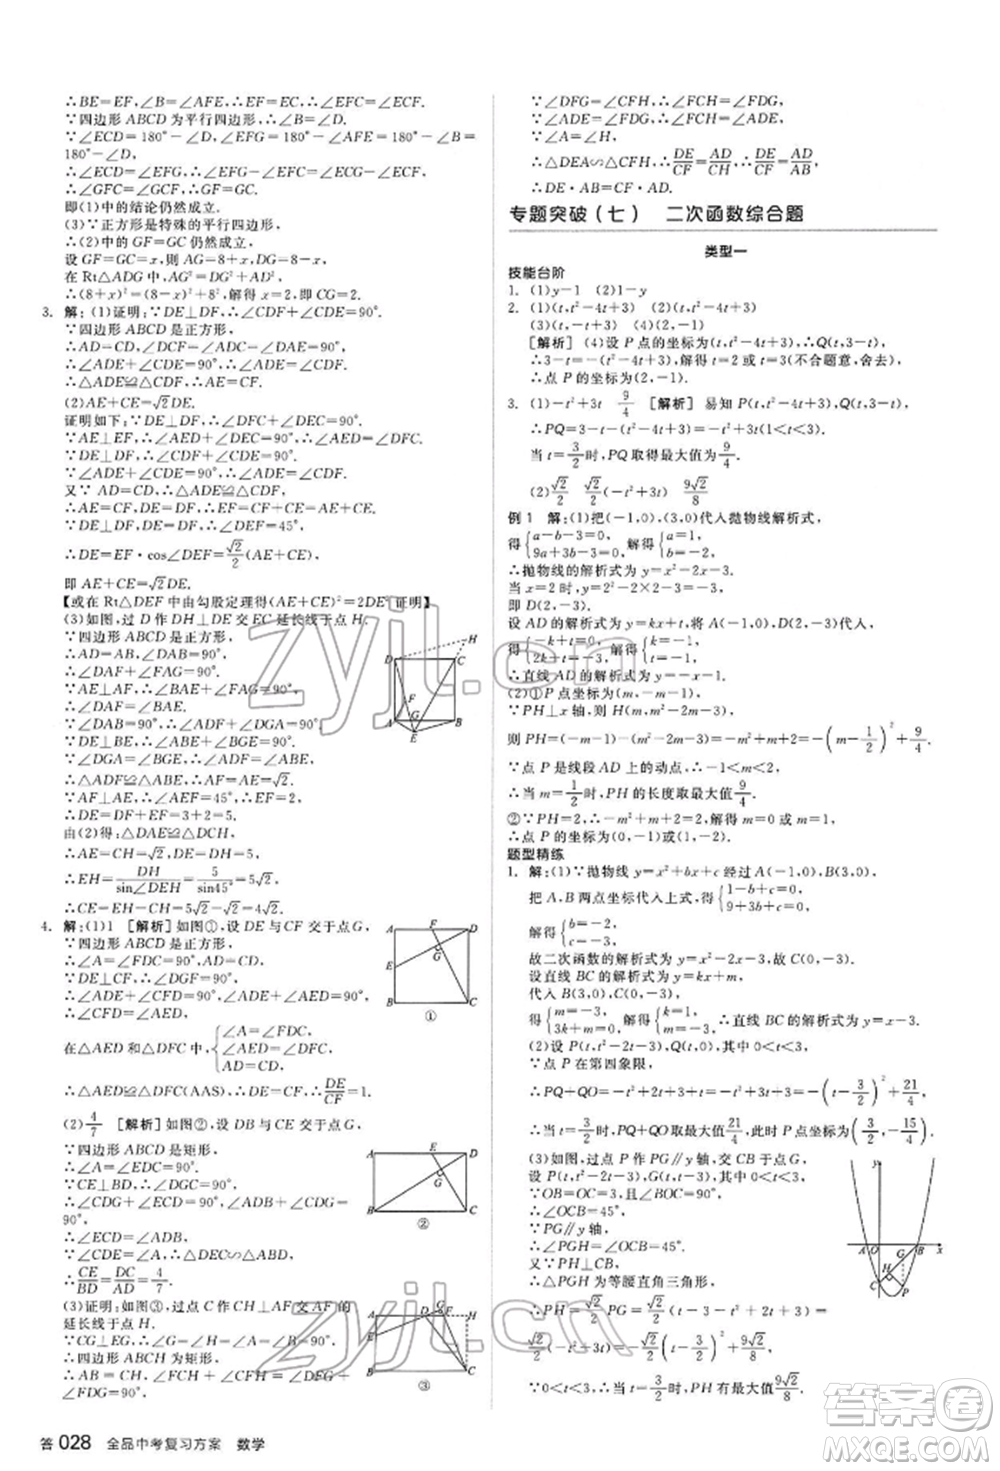 ∴BE=EF,∠B=∠AFE,∴EF=EC,∴∠FEC=∠ECF.
∵四边形 ABCD 为平行四边形,
∴∠ECD=180°-∠D,∠EFG=180°-∠AFE=180°-∠B=
180°-∠D,
∴∠ECD=∠EFG,
∴∠ECD-∠ECF=∠EFG-∠EFC,
∴∠GFC=∠GCF,∴GF=GC.
即(1)中的结论仍然成立.
(3)∵正方形是特殊的平行四边形,
∴(2)中的 GF=GC仍然成立,
设 GF=GC=x,则 AG=8+x,DG=8-x,
在 Rt△ADG 中,AG²=DG²+AD²,
∴(8+x)²=(8-x)²+8²,解得 x=2,∴DG=8-2=6.
3. 解:(1)证明:∵DE⊥DF,∴∠CDF+∠CDE=90°.
∵四边形 ABCD 是正方形,
∴AD=CD,∠DCF=∠DAE=∠ADC=90°,
∴∠ADE+∠CDE=90°,∴∠ADE=∠CDF,
∴△ADE≌△CDF,∴AE=CF.
(2)AE+CE=√2DE.
证明如下:∵DE⊥DF,∴∠DFC+∠DEC=90°.
∵AE⊥EF,∴∠AED+∠DEC=90°,∴∠AED=∠DFC.
∵DE⊥DF,∴∠CDF+∠CDE=90°.
∵∠ADE+∠CDE=90°,∴∠ADE=∠CDF.
又∵AD=CD,∴△ADE≌△CDF,
∴AE=CF,DE=DF,∴EF=AE+CE.
∵DE⊥DF,DE=DF,∴∠DEF=45°,
∴DE=EF·cos∠DEF=√2/2(AE+CE),
即 AE+CE=√2DE.
【或在 Rt△DEF 中由勾股定理得(AE+CE)²=2DE²证明】
(3)如图,过 D 作 DH⊥DE 交 EC 延长线于点 H.
∵四边形 ABCD 是正方形,
∴AD=AB,∠DAB=90°,
∴∠DAF+∠FAG=90°.
∴∠DAF=∠BAE.
∵∠DAB=90°,∴∠ADF+∠DGA=90°.
∵∠DGA=∠BGE,∴∠ADF=∠ABE,
∴△ADF≌△ABE,∴AF=AE=√2.
∵AF⊥AE,∴∠AFE=45°,∴EF=2,
∴DE=DF+EF=3+2=5.
由(2)得:△DAE≌△DCH,
∴AE=CH=√2,DE=DH=5,
∴EH=DH/sin∠DEH=5/sin45°=5√2,
∴CE=EH-CH=5√2-√2=4√2.
H
D
C
F
G
A
B
E
4. 解:(1)1 [解析]如图①,设 DE与CF 交于点G,
∵四边形 ABCD 是正方形,
∴∠A=∠FDC=90°,AD=CD.
∵DE⊥CF,∴∠DGF=90°,
∴∠ADE+∠CFD=90°,
∵∠ADE+∠AED=90°,
∴∠CFD=∠AED.
在△AED 和△DFC 中,{∠A=∠FDC, ∠CFD=∠AED, AD=CD,
∴△AED≌△DFC(AAS),∴DE=CF,∴DE/CF=1.
A
F
D
E
G
B
C
①
(2)4/7 [解析]如图②,设 DB 与 CE 交于点G,
∵四边形 ABCD 是矩形,
∴∠A=∠EDC=90°.
∵CE⊥BD,∴∠DGC=90°,
∴∠CDG+∠ECD=90°,∠ADB+∠CDG=90°,
∴∠ECD=∠ADB.
∵∠CDE=∠A,∴△DEC∽△ABD,
∴CE/BD=DC/AD=4/7.
A
E
D
G
B
C
②
(3)证明:如图③,过点 C 作 CH⊥AF 交 AF 的
延长线于点 H.
∵CG⊥EG,∴∠G=∠H=∠A=∠B=90°,
∴四边形 ABCH 为矩形,
∴AB=CH,∠FCH+∠CFH=∠DFG+
∠FDG=90°.
③
∵∠DFG=∠CFH,∴∠FCH=∠FDG,
∵∠ADE=∠FDG,∴∠FCH=∠ADE.
∵∠A=∠H=90°,
∴△DEA∽△CFH,∴DE/CF=AD/CH,∴DE/CF=AD/AB,
∴DE·AB=CF·AD.
专题突破(七) 二次函数综合题
类型一
技能台阶
1. (1)y-1 (2)1-y
2. (1)(t,t²-4t+3) (2)(t,t²-4t+3)
(3)(t,-t+3) (4)(2,-1)
[解析] (4)设 P 点的坐标为(t,t²-4t+3),∴Q(t,-t+3),
∴3-t-(t²-4t+3)=2,解得 t=2或 t=1(不合题意,舍去),
∴点 P 的坐标为(2,-1).
3. (1)-t²+3t 9/4 [解析] 易知 P(t,t²-4t+3),Q(t,-t+3),
∴PQ=3-t-(t²-4t+3)=-t²+3t(0<t<3).
当 t=3/2时,PQ 取得最大值9/4.
(2)√2/2 √2/2(-t²+3t) 9√2/8
例1 解:(1)把(-1,0),(3,0)代入抛物线解析式,
得{a-b-3=0, 9a+3b-3=0, 解得{a=1, b=-2.
∴抛物线的解析式为 y=x²-2x-3.
当 x=2时,y=2²-2×2-3=-3,
即 D(2,-3).
设 AD 的解析式为 y=kx+t,将 A(-1,0),D(2,-3)代入,
得{-k+t=0, 2k+t=-3, 解得{k=-1, t=-1.
∴直线 AD 的解析式为 y=-x-1.
(2)①P 点坐标为(m,-m-1),
∵PH⊥x 轴,则 H(m,m²-2m-3),
则 PH=(-m-1)-(m²-2m-3)=-m²+m+2=-(m-1/2)²+9/4,
∵点 P 是线段 AD 上的动点,∴-1<m<2,
∴当 m=1/2时,PH 的长度取最大值9/4.
②∵PH=2,∴-m²+m+2=2,解得 m=0或 m=1,
∴点 P 的坐标为(0,-1)或(1,-2).
题型精练
1. 解:(1)∵抛物线 y=x²+bx+c 经过 A(-1,0),B(3,0),
把 A,B 两点坐标代入上式,得{1-b+c=0, 9+3b+c=0,
解得{b=-2, c=-3.
故二次函数的解析式为 y=x²-2x-3,故 C(0,-3).
设直线 BC 的解析式为 y=kx+m,
代入 B(3,0),C(0,-3),
得{m=-3, 3k+m=0, 解得{k=1, m=-3, ∴直线 BC 的解析式为 y=x-3.
(2)设 P(t,t²-2t-3),Q(t,0),其中 0<t<3,
∵点 P 在第四象限,
∴PQ+QO=-t²+2t+3+t=-t²+3t+3=-(t-3/2)²+21/4,
∴当 t=3/2时,PQ+QO最大值21/4,此时 P 点坐标为(3/2,-15/4).
(3)如图,过点 P 作 PG∥y 轴交 BC 于点 G,
设 P(t,t²-2t-3),G(t,t-3),其中 0<t<3,
∵OB=OC=3,且∠BOC=90°,
∴∠OCB=45°,
∵PG∥y 轴,
∴∠PGH=∠OCB=45°,
又∵PH⊥BC,
∴△PGH 为等腰直角三角形,
∴PH=√2/2PG=√2/2(t-3-t²+2t+3)=
√2/2(-t²+3t)=-√2/2(t-3/2)²+9√2/8,
∵0<t<3,∴当 t=3/2时,PH 有最大值9√2/8.
y
A
O
G
B
x
H
C
P
答 028 全品中考复习方案 数学
zyjl.cn
zyjl.cn
作业精灵